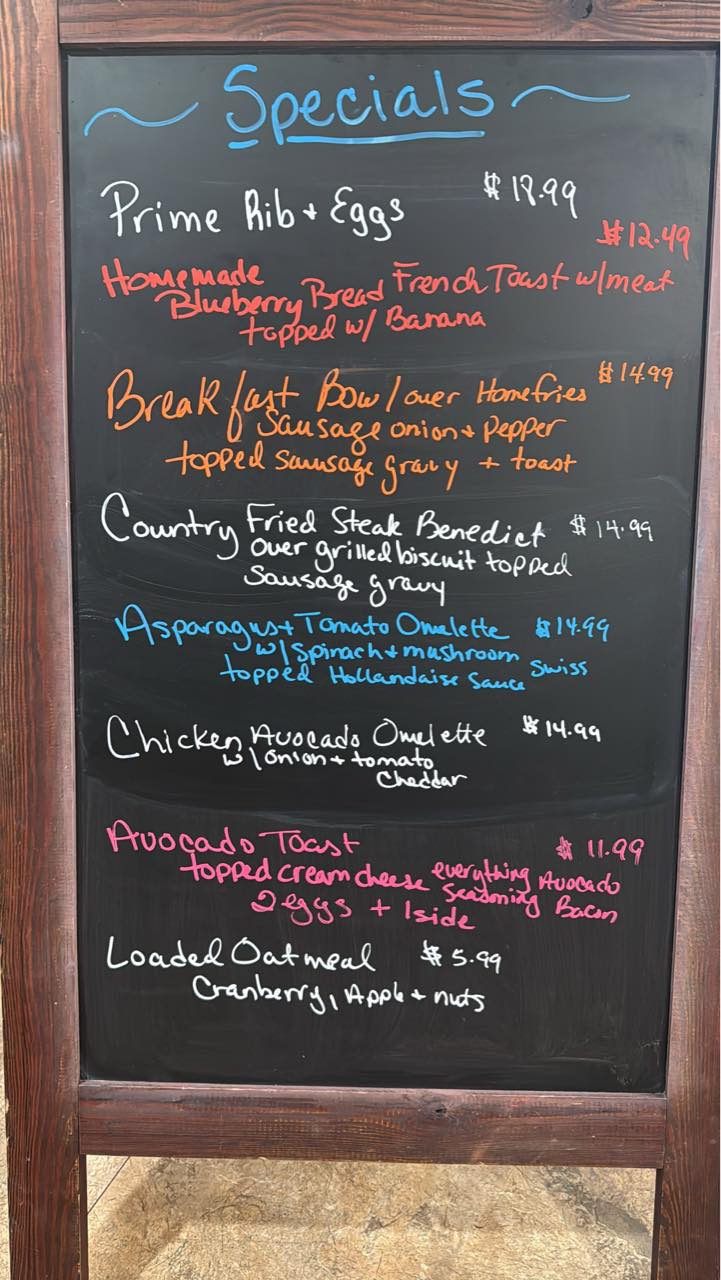 Specials
Prime Rib + Eggs $18.99
$12.49
Homemade
Blueberry Bread French Toast w/meat
topped w/ Banana
Breakfast Bowl over Homefries $14.99
Sausage onion + pepper
topped sausage gravy + toast
Country Fried Steak Benedict $14.99
over grilled biscuit topped
Sausage gravy
Asparagus + Tomato Omelette $14.99
w/ Spinach + mushroom Swiss
topped Hollandaise Sauce
Chicken Avocado Omelette $14.99
w/ onion + tomato
Cheddar
Avocado Toast $11.99
topped cream cheese everything Avocado
seasoning Bacon
2 eggs + 1 side
Loaded Oatmeal $5.99
Cranberry, Apple + nuts